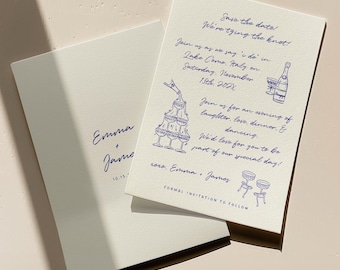 Save the date!
We're tying the knot!
Join us as we say 'i do' in
Lake Como, Italy on
Saturday, November
15th 202X
Join us for an evening of
laughter, love, dinner, &
dancing.
We'd love for you to be
part of our special day!
xoxo, Emma + James
FORMAL INVITATION TO FOLLOW
Emma
+
James